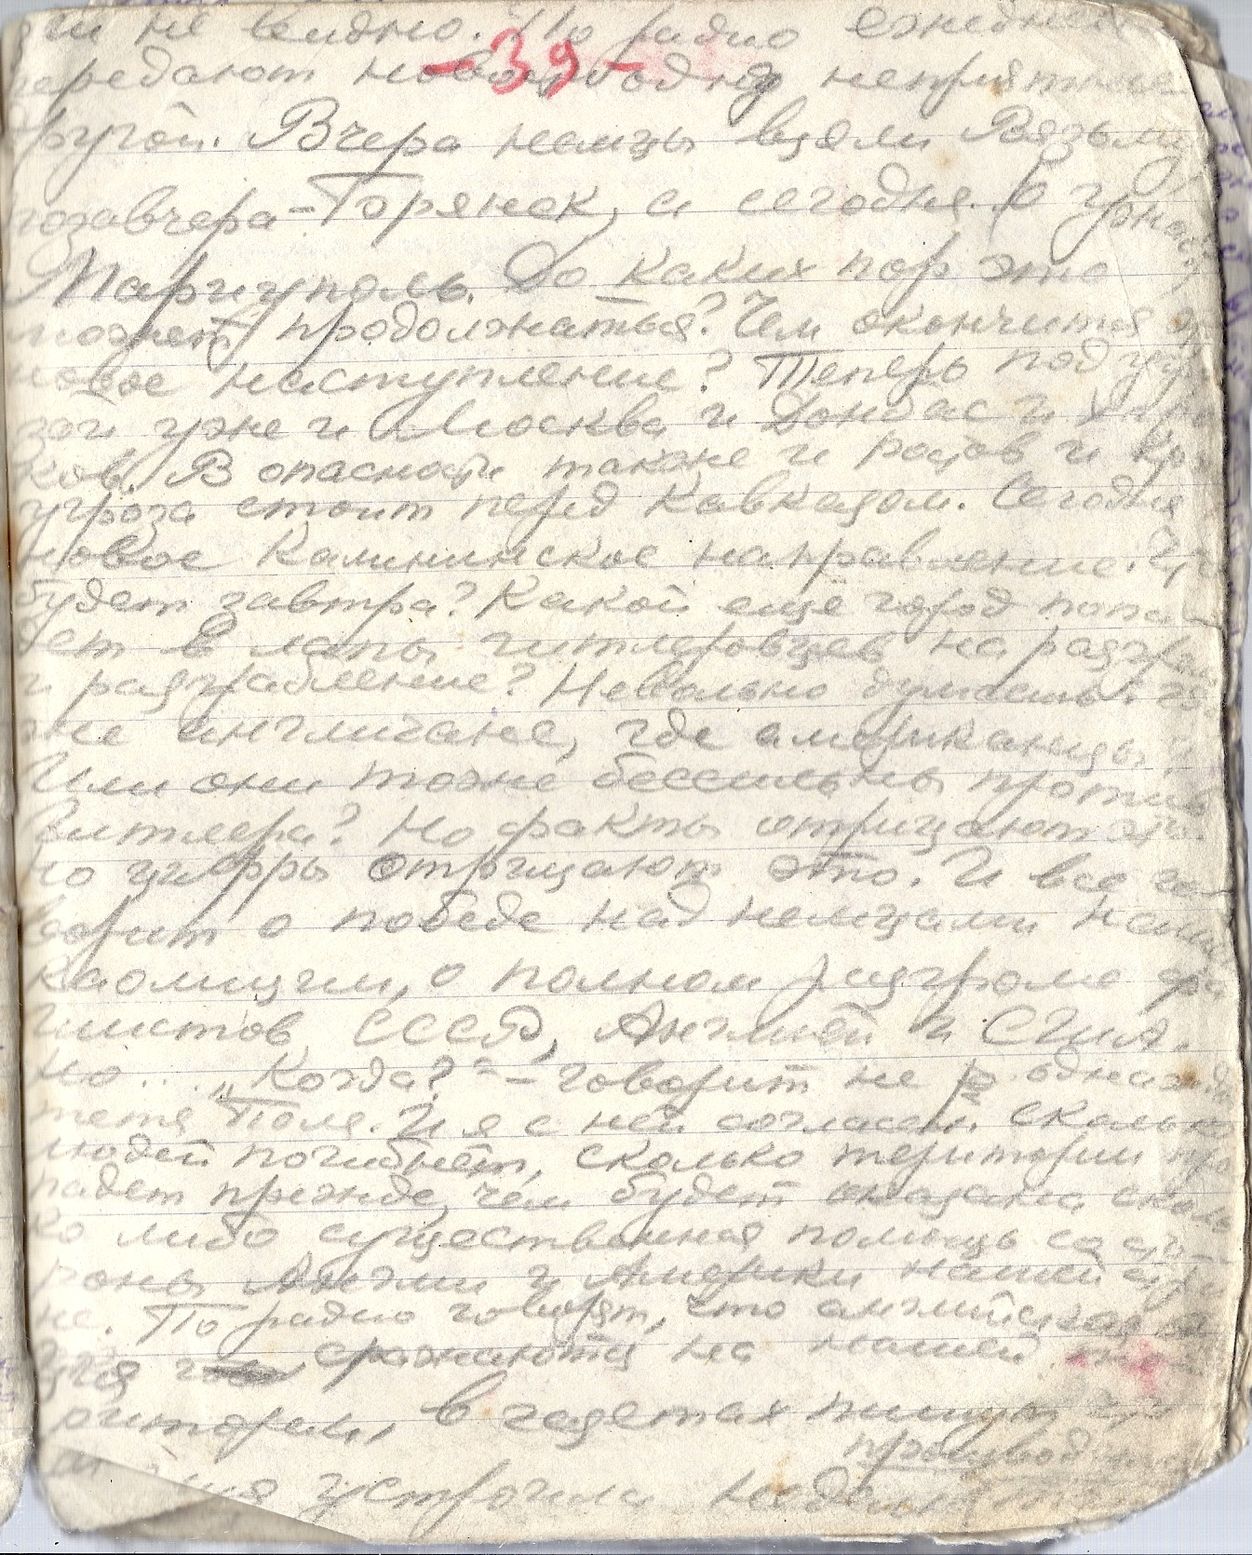 ги не видно. По радио ежеднев
передают новости одна неприятнее
другой. Вчера немцы взяли Вязьму
позавчера – Брянск, а сегодня уже
Мариуполь. До каких пор это
может продолжаться? Чем окончится
новое наступление? Теперь под угро
зой уже и Москва и Донбас и Харь
ков. В опасности также и Ростов и
угроза стоит перед Кавказом. Сегодня
новое Калининское направление. Что
будет завтра? Какой еще город попа
дет в лапы гитлеровцев на разгром
и разграбление? Невольно думаешь: где
же англичане, где американцы?
Или они тоже бессильны против
Гитлера? Но факты отрицают это.
Но цифры отрицают это. И все го
ворит о победе над немцами
коалиции, о полном разгроме фа
шистов СССР, Англией и США.
Но... „Когда?" – говорит не однажды
тетя Поля. И я с ней согласен. Сколько
людей погибнет, сколько територии про
падет прежде, чем будет оказана сколь
ко либо существенная помощь со сто
роны Англии и Америки нашей стра
не. По радио говорят, что английская
ция сражаются на нашей те
ритории, в газетах пишут
производи
устроила неделю